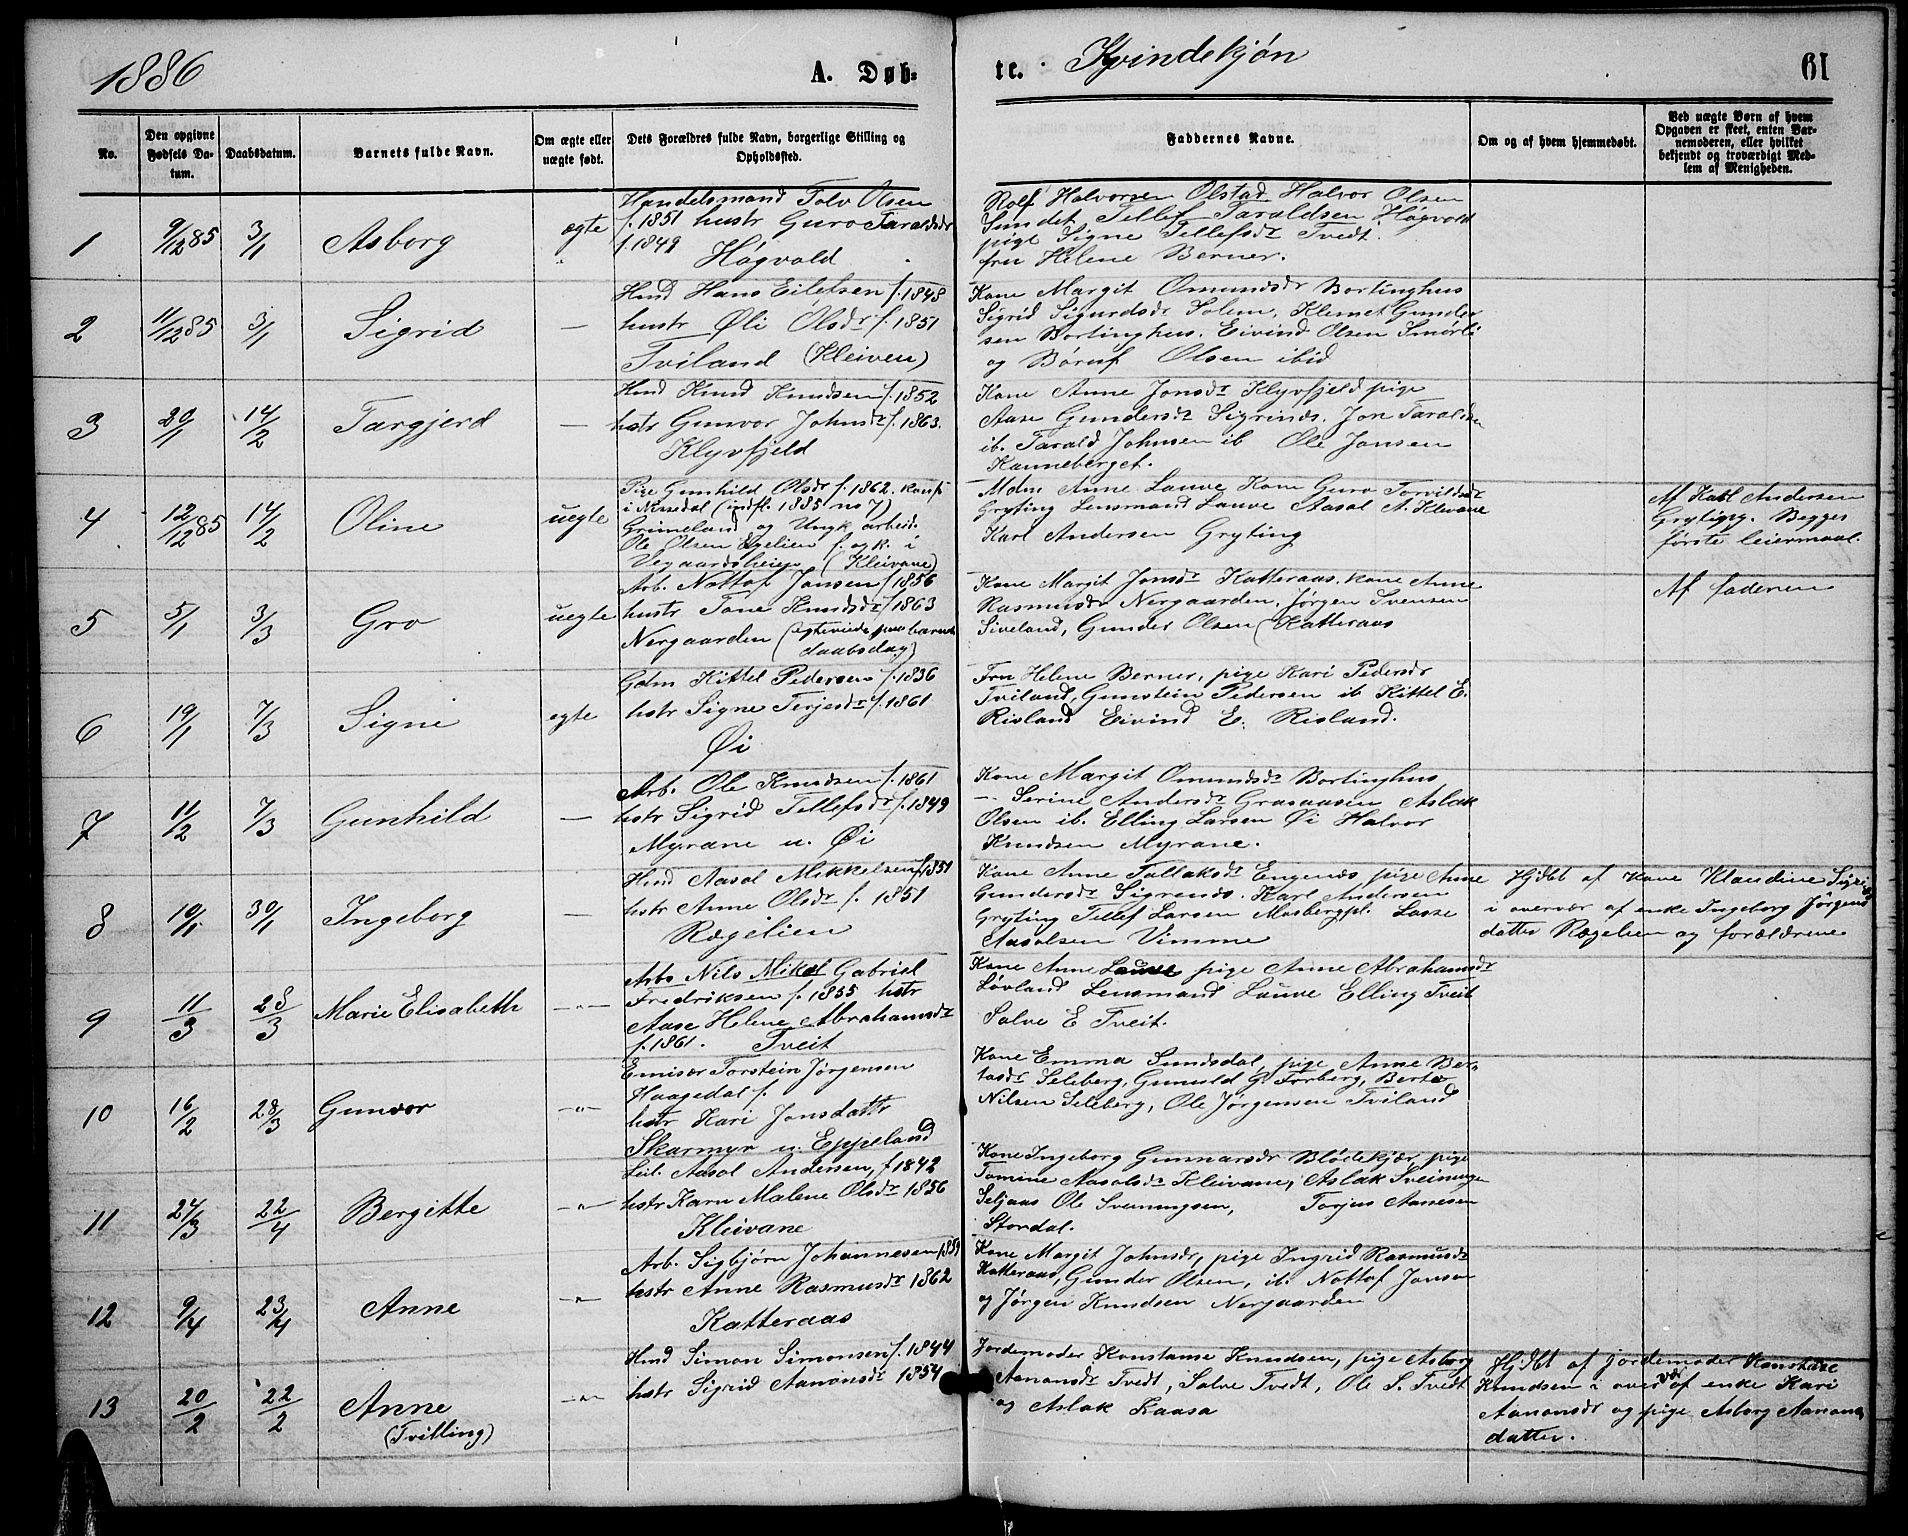 1886
A. Døb-
te.
Kvindekjøn
61
No.
Den opgivne Fødsels Datum.
Daabsdatum.
Barnets fulde Navn.
Om ægte eller uægte født.
Dets Forældres fulde Navn, borgerlige Stilling og Opholdssted.
Faddernes Navne.
Om og af hvem hjemmedøbt.
Ved uægte Børn af hvem Opgaven er skeet, enten Barnemoderen, eller hvilket bekjendt og troværdigt Medlem af Menigheden.
1
9/12 85
3/1
Asborg
ægte
Handelsmand Tolv Olsen
f. 1851 hustr Guro Taraldsdr
f. 1849
Høgvold
Rolf Halvorsen Olstad Halvor Olsen
Sundet, Tellef Taraldsen Høgvold
pige Signe Tellefsdr Tvedt.
fru Helene Berner.
2
11/12 85
3/1
Sigrid
—
Hmd Hans Eilefsen f. 1848
hustr Øli Olsdr f. 1851
Tviland (Kleiven)
Kone Margit Omundsdr Bortinghus
Sigrid Sigurdsdr Solem, Klemet Gunder
sen Bortinghus, Eivind Olsen Smørli
og Børuf Olsen ibid
3
20/1
14/2
Targjerd
—
Hmd Knud Knudsen f. 1852
hstr Gunvor Johnsdr f. 1863.
Klyvfjeld
Kone Anne Jonsdr Klyvfjeld pige
Aase Gundersdr Sigrinds. Jon Taraldsen
ib. Tarald Johnsen ib Ole Jonsen
Kanneberget.
4
12/12 85
14/2
Oline
uegte
Pige Gunhild Olsdr f. 1862. konf
i Nissedal (indfl. 1885 no 7)
Grimeland og Ungk. arbeid.
Ole Olsen Egelien f. og k. i
Vegaardsheien (Kleivane)
Mdm Anne Lauve Kone Guro Torvildsdr
Gryting Lensmand Lauve Aasol A. Klevane
Karl Andersen Gryting
Af Karl Andersen
Grytigng. Begges
første leiermaal.
5
5/1
3/3
Gro
uegte
Arb. Nottof Jonsen f. 1856
hustr Tone Knudsdr f. 1863
Nergaarden (egteviede paa barnets
daabsdag)
Kone Margit Jonsdr Katteraas, kone Anne
Rasmusdr Nergaarden, Jørgen Svensen
Siveland, Gunder Olsen Katteraas
Af faderen
6
19/1
7/3
Signe
egte
Gdm Kittel Pedersen f. 1836
hstr Signe Terjesdr f. 1861
Øi
Fru Helene Berner, pige Kari Pedersdr
Tviland, Gunstein Pedersen ib Kittel E.
Risland Eivind E. Risland.
7
11/2
7/3
Gunhild
—
Arb. Ole Knudsen f. 1861
hstr Sigrid Tellefsdr f. 1849
Myrane u. Øi
Kone Margit Omundsdr Bortinghus
— Serine Andersdr Grasaasen Aslak
Olsen ib. Elling Larsen Øi Halvor
Knudsen Myrane.
8
10/1
30/1
Ingeborg
—
Hmd Aasol Mikkelsen f. 1851
hstr Anne Olsdr f. 1851
Røgelien
Kone Anne Tallaksdr Engenes pige Anne
Gundersdr Sigrends. Karl Andersen
Gryting Tellef Larsen Mosbergpl. Lasse
Aasolsen Vimme
Hjdbt af Kone Klaudine Sigri
i overvær af enke Ingeborg Jørgens
datter Røgelien og forældrene
9
11/3
28/3
Marie Elisabeth
—"—
Arbs Nils Mikal Gabriel
Fredriksen f. 1855 hstr
Aase Helene Abrahamsdr
f. 1861. Tveit
Kone Anne Lauve pige Anne Abrahamsdr
Løvland Lensmand Lauve Elling Tveit
Salve E Tveit.
10
16/2
28/3
Gunvor
—"—
Emisær Torstein Jørgensen
Haagedal f.
hstr Kari Jonsdattr
Skarmyr u. Eppeland
Kone Emma Sundsdal, pige Anne Ber-
tasdr Seleberg, Gunuld G. Forberg, Berte
Nilsen Seleberg, Ole Jørgensen Tviland
11
24/3
22/4
Bergitte
—"—
Lul. Aasol Andersen, f 1842
hstr Karn Malene Olsdr 1856
Kleivane
Kone Ingeborg Gunnarsdr Blødekjær, pige
Tomine Aasolsdr Kleivane, Aslak Sveinunge
Seljaas Ole Sveinungsen, Torjus Aanesen
Stordal.
12
9/4
23/4
Anne
—"—
Arb. Sigbjørn Johannesen 1859
hstr Anne Rasmusdr 1862
Katteraas
Kone Margit Johnsdr, pige Ingrid Rasmusdr
Katteraas, Gunder Olsen, ib. Nottof Jonsen
og Jørgen Knudsen Nergaarden
13
20/2
22/2
Anne
(Tvilling)
—"—
Hmd Simon Simonsen f. 1844
hstr Sigrid Aanonsdr 1854
Jordemoder Konstanse Knudsen, pige Asborg
Aanonsdr Tvedt, Salve Tvedt, Ole S. Tvedt
og Aslak Kaasa
Hjdbt af jordemoder Konstanse
Knudsen i overvær af enke Kari
Aanonsdr og pige Asborg Aanons
datter.